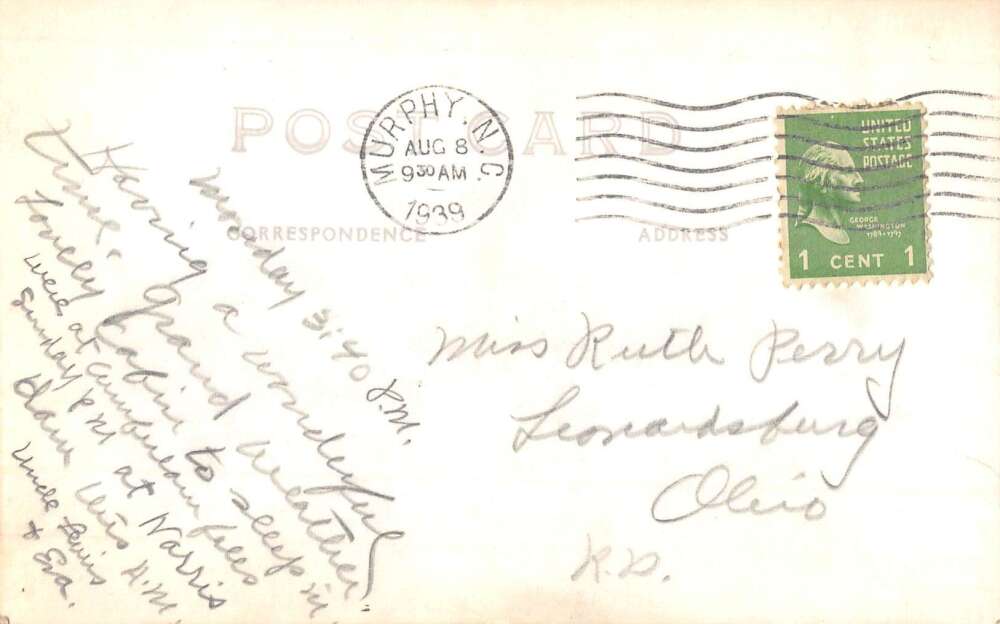 POST CARD
MURPHY. N.C.
AUG 8
9 30 AM
1939
UNITED
STATES
POSTAGE
GEORGE
WASHINGTON
1789-1797
1 CENT 1
CORRESPONDENCE
ADDRESS
Monday 3:40 P.M.
Having a wonderful
time. Grand weather.
Lovely cabin to sleep in.
were at Cumberland falls
Sunday P.M at Norris
dam this A.M.
Uncle Lewis
& Eva.
Miss Ruth Perry
Leonardsburg
Ohio
R.D.